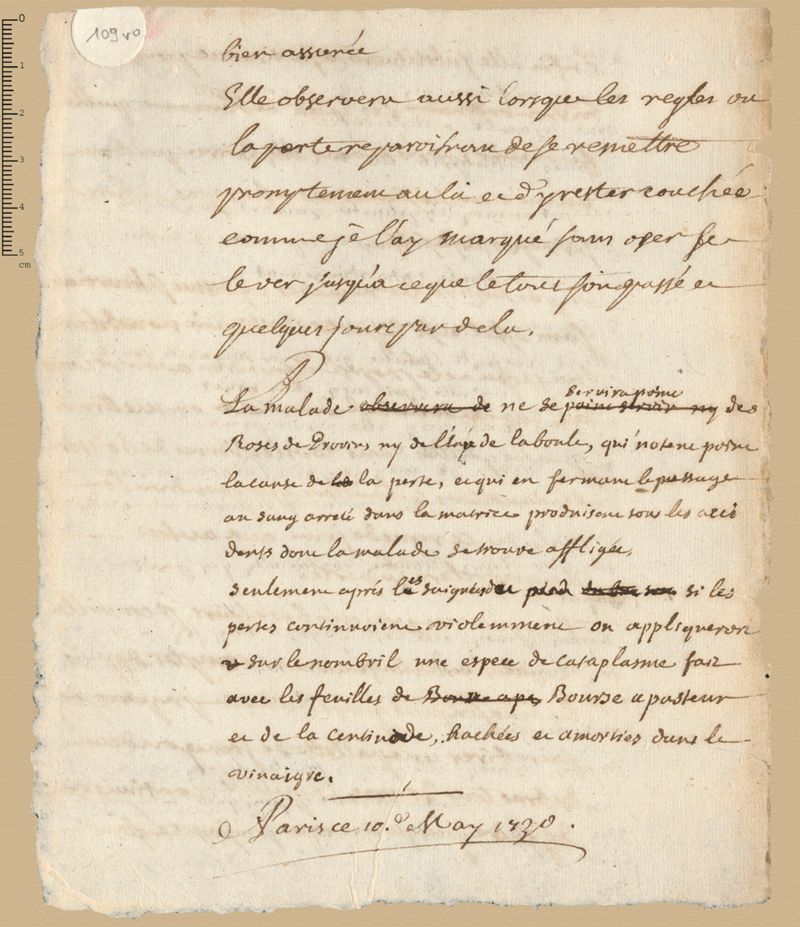 109 vo
0
1
2
3
4
5
cm
bien assurée
Elle observera aussi lorsque les regles ou
la perte reparoistront de se remettre
promptement au lit et d'y rester couchée
comme je l'ay marqué sans oser se
lever jusqu'a ce que le tout soit passé et
quelques jours par dela.
servira point
La malade observera de ne se point servir ny des
Roses de Provins ny de l'eau de la boule, qui n'otent point
la cause de la perte, et qui en fermant le passage
au sang arreté dans la matrice produisent tous les acci
dents dont la malade se trouve affligée,
seulement aprés les saignées du pied si les
pertes continuoient violemment on appliqueroit
sur le nombril une espece de cataplasme fait
avec les feuilles de Bourse a pasteur
et de la centinode, hachées et amorties dans le
vinaigre.
Paris ce 10.e May 1730.